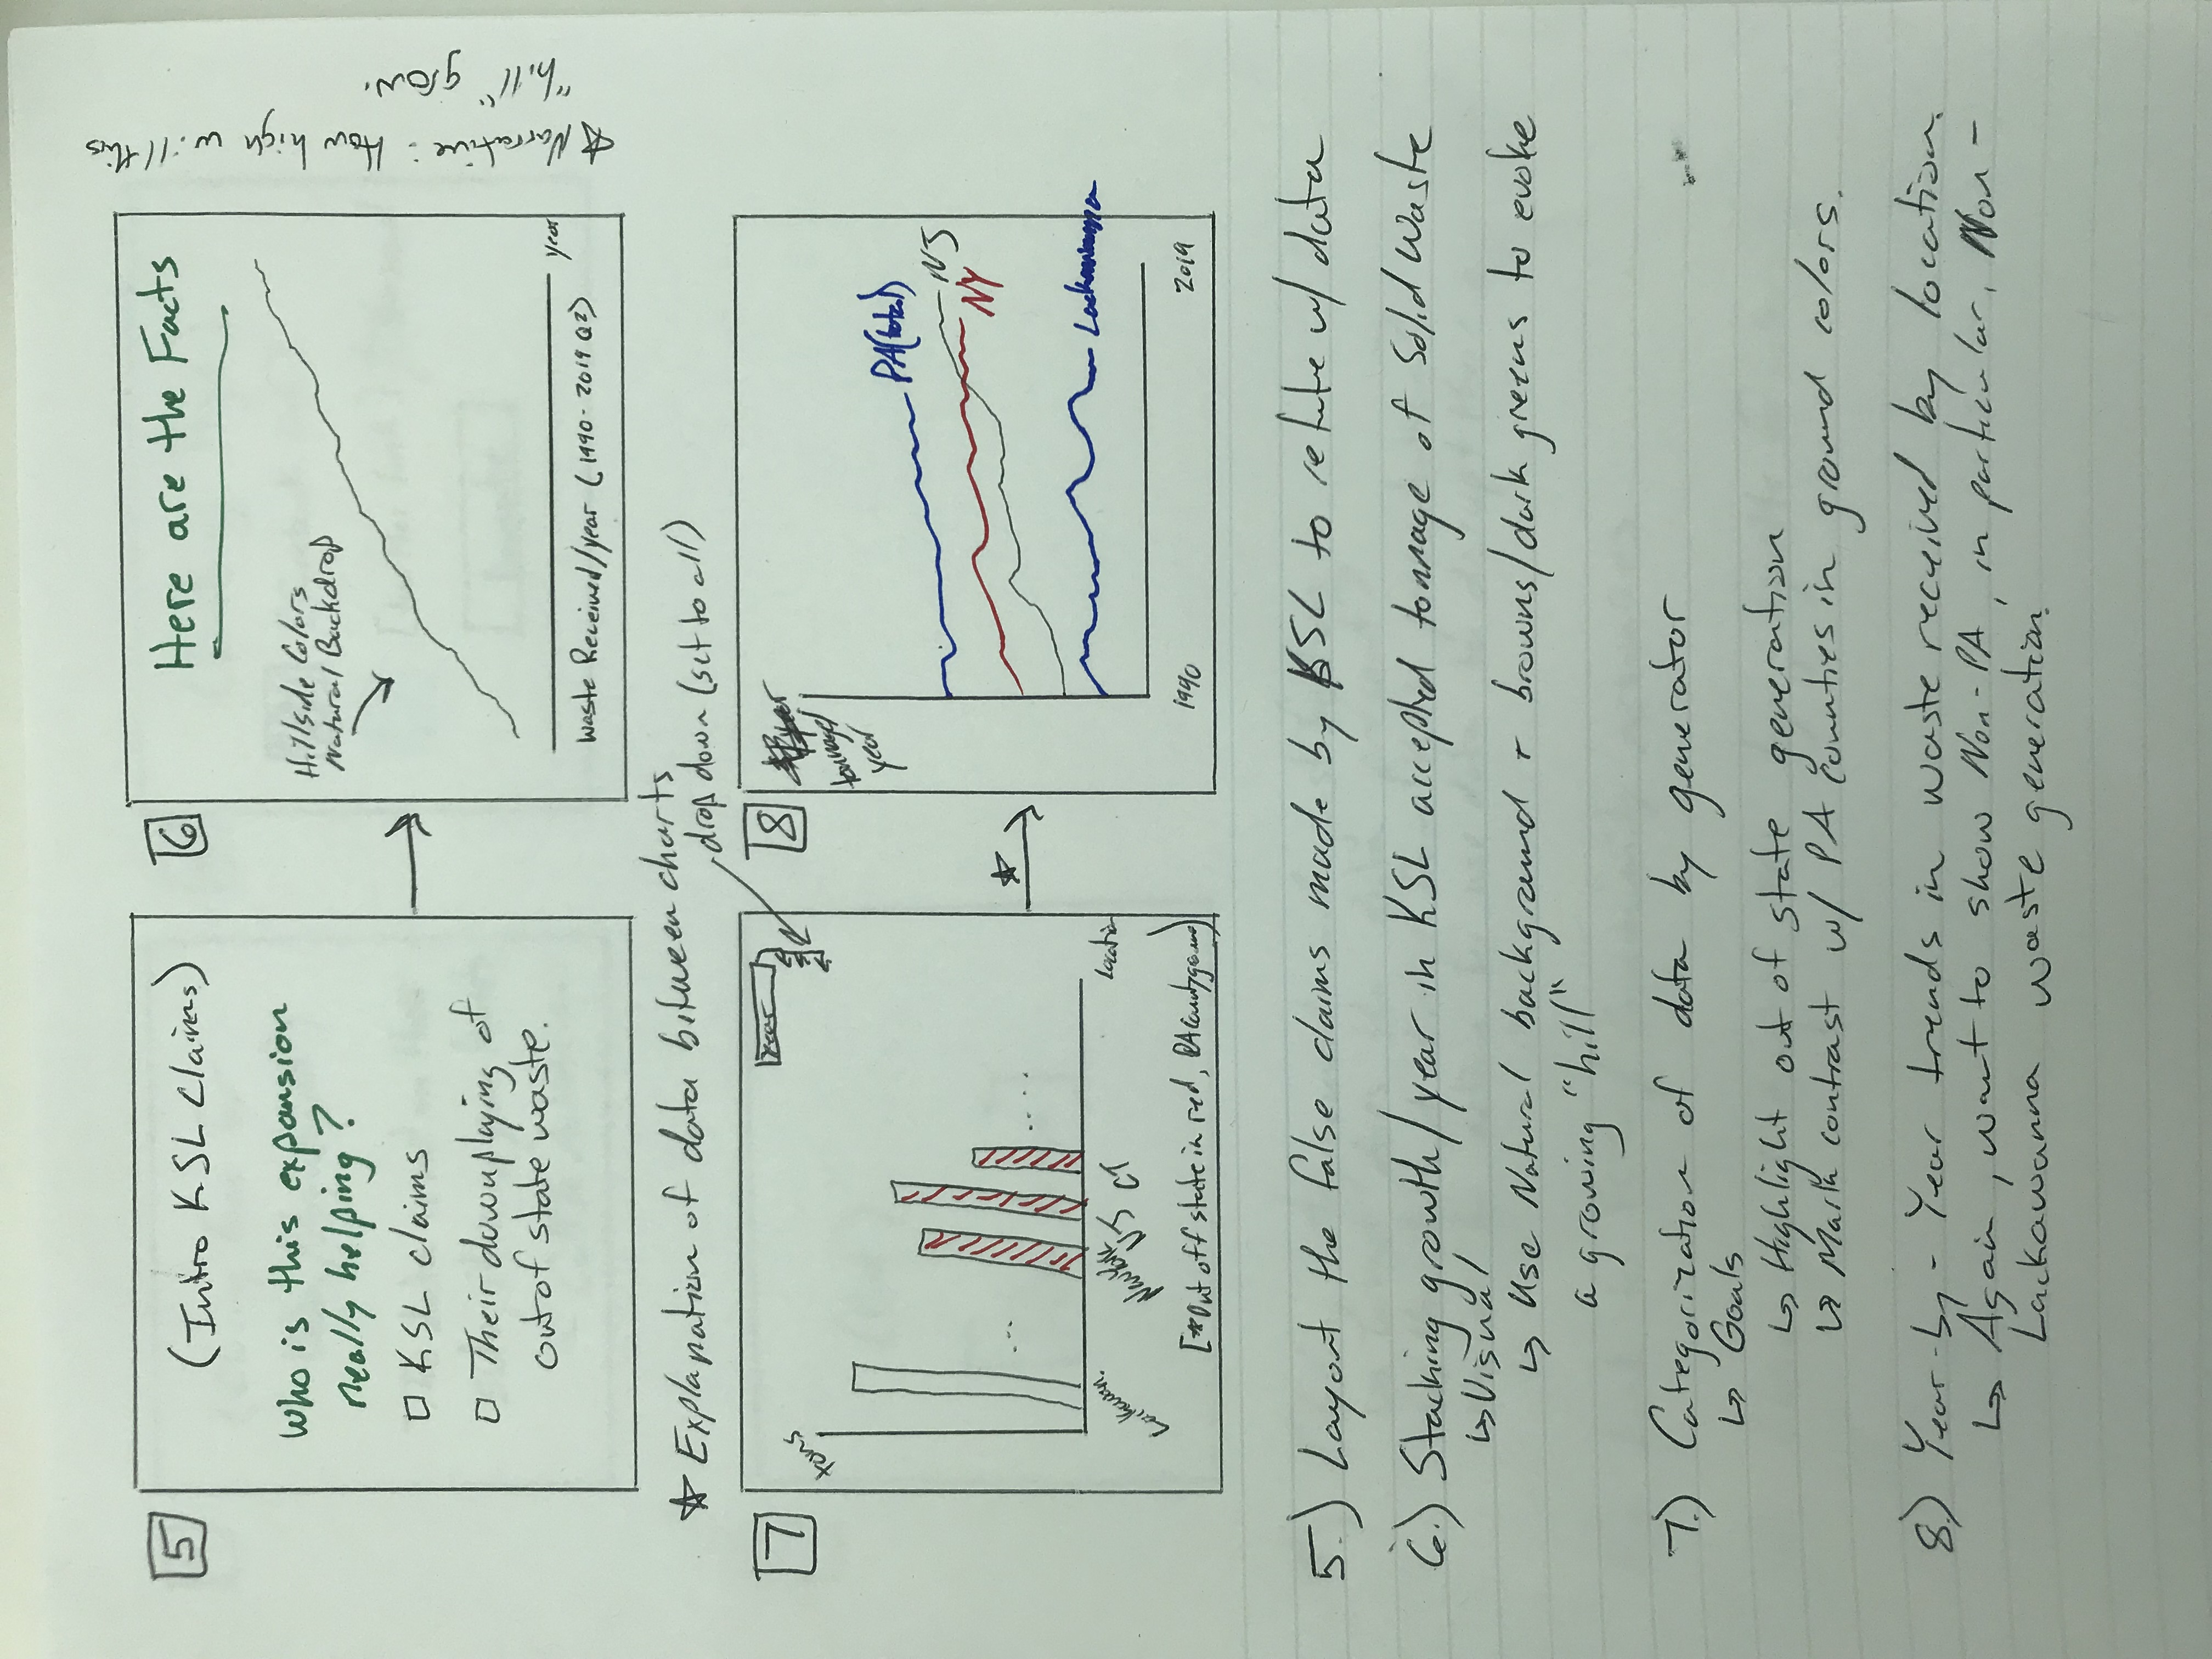 5
(Intro KSL Claims)
Who is this expansion
really helping?
KSL claims
Their downplaying of
out of state waste.
6
Here are the Facts
Hillside Colors
Natural Backdrop
year
Waste Received/year (1990-2019 Q2)
Narrative: How high will this
"hill" grow.
Explanation of data between charts
drop down (set to all)
7
year
tons
Lackawan.
New York
NJ
CT
Location
[*Out off state in red, PA County
8
tonnage/
year
PA(total)
NJ
NY
Lackawanna
1990
2019
5.) Layout the false claims made by KSL to refute w/ data
6.) Stacking growth/year in KSL accepted tonnage of Solid Waste
↳ Visual
↳ Use Natural background + browns/dark greens to evoke
a growing "hill"
7.) Categorization of data by generator
↳ Goals
↳ Highlight out of state generation
↳ Mark contrast w/ PA counties in ground colors.
8.) Year-by-Year trends in waste received by location.
↳ Again, want to show Non-PA, in particular, Non-
Lackawanna waste generation.